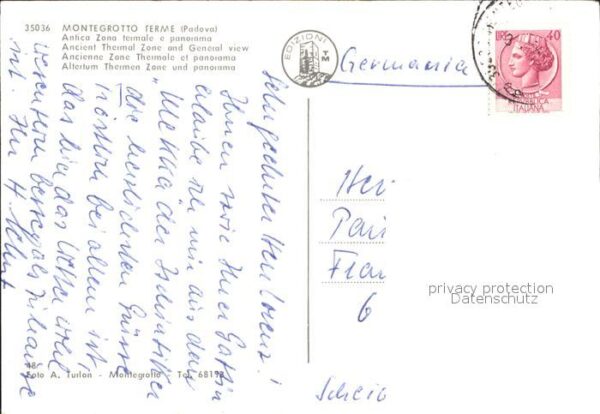 35036 MONTEGROTTO TERME (Padova)
Antica Zona termale e panorama
Ancient Thermal Zone and General view
Ancienne Zone Thermale et panorama
Altertum Thermen Zone und panorama
EDIZIONI
TM
Germania
LIRE 40
REPUBBLICA
ITALIANA
Sehr geehrter Herr Lorenz!
Ihnen sowie Ihrer Gattin
erlaube ich mir aus dem
"Mekka" der Ischiatiker
die herzlichsten Grüsse
bei allem ist,
das hier das Wetter
besser als zuhause
ist. Ihr H.
48
Foto A. Turlon - Montegrotto - Tel. 68113
Her
Pau
Fran
6
Scheib
privacy protection
Datenschutz